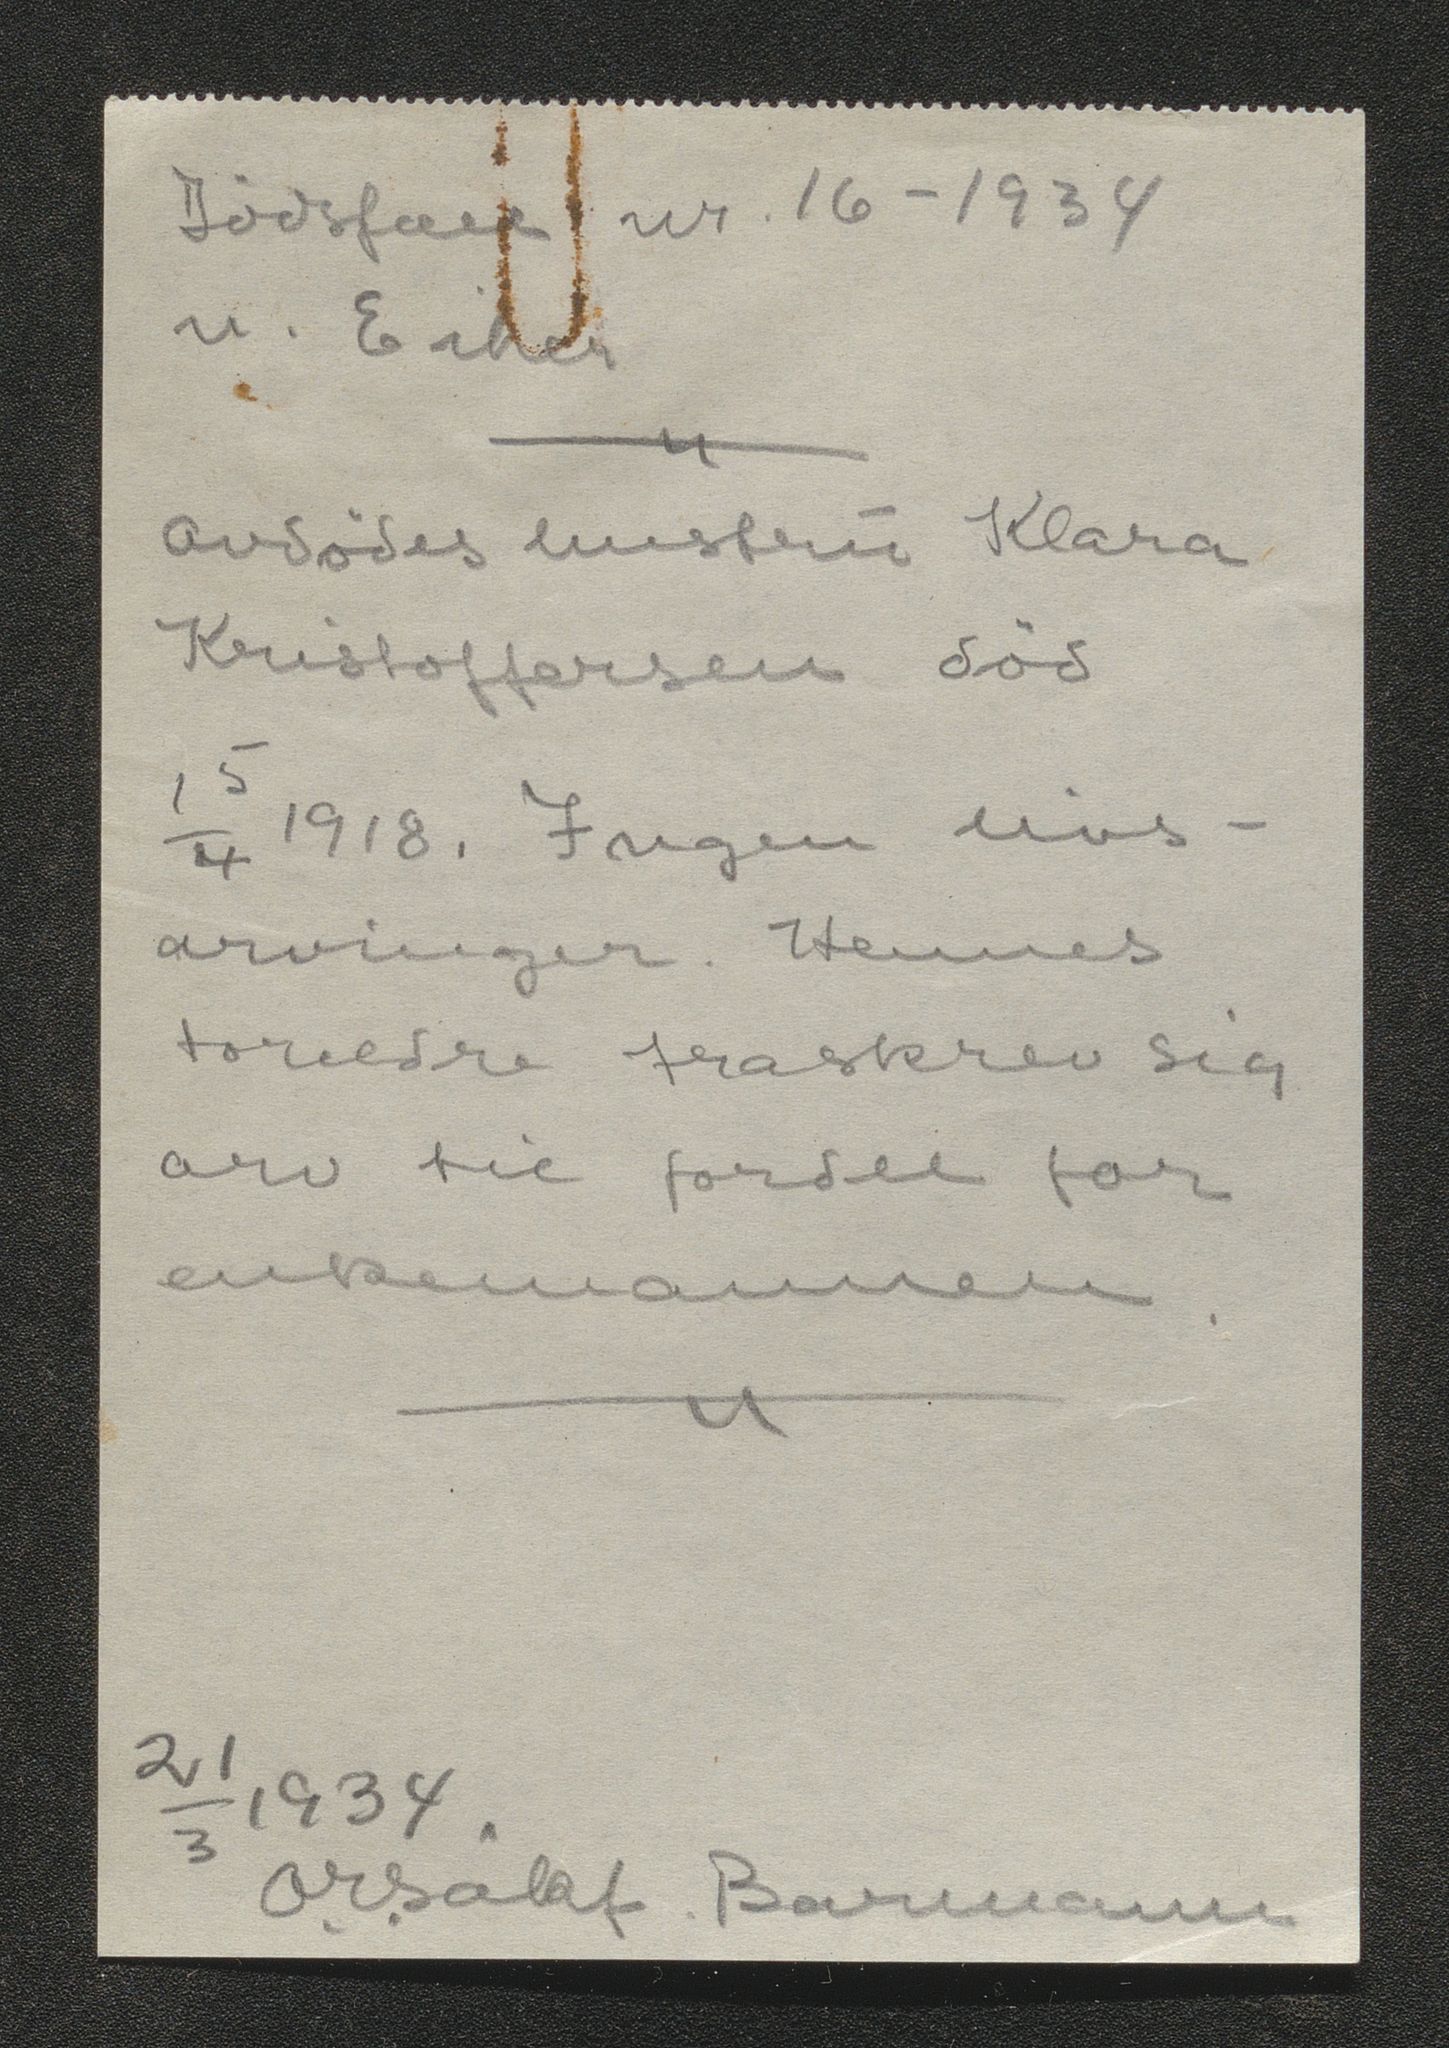 Dödsfall nr. 16-1934
n. Eiker
avdödes hustru Klara
Kristoffersen död
15/4 1918. Ingen livs-
arvinger. Hennes
foreldre fraskrev sig
arv til fordel for
enkemannen.
21/3 1934.
Barmann